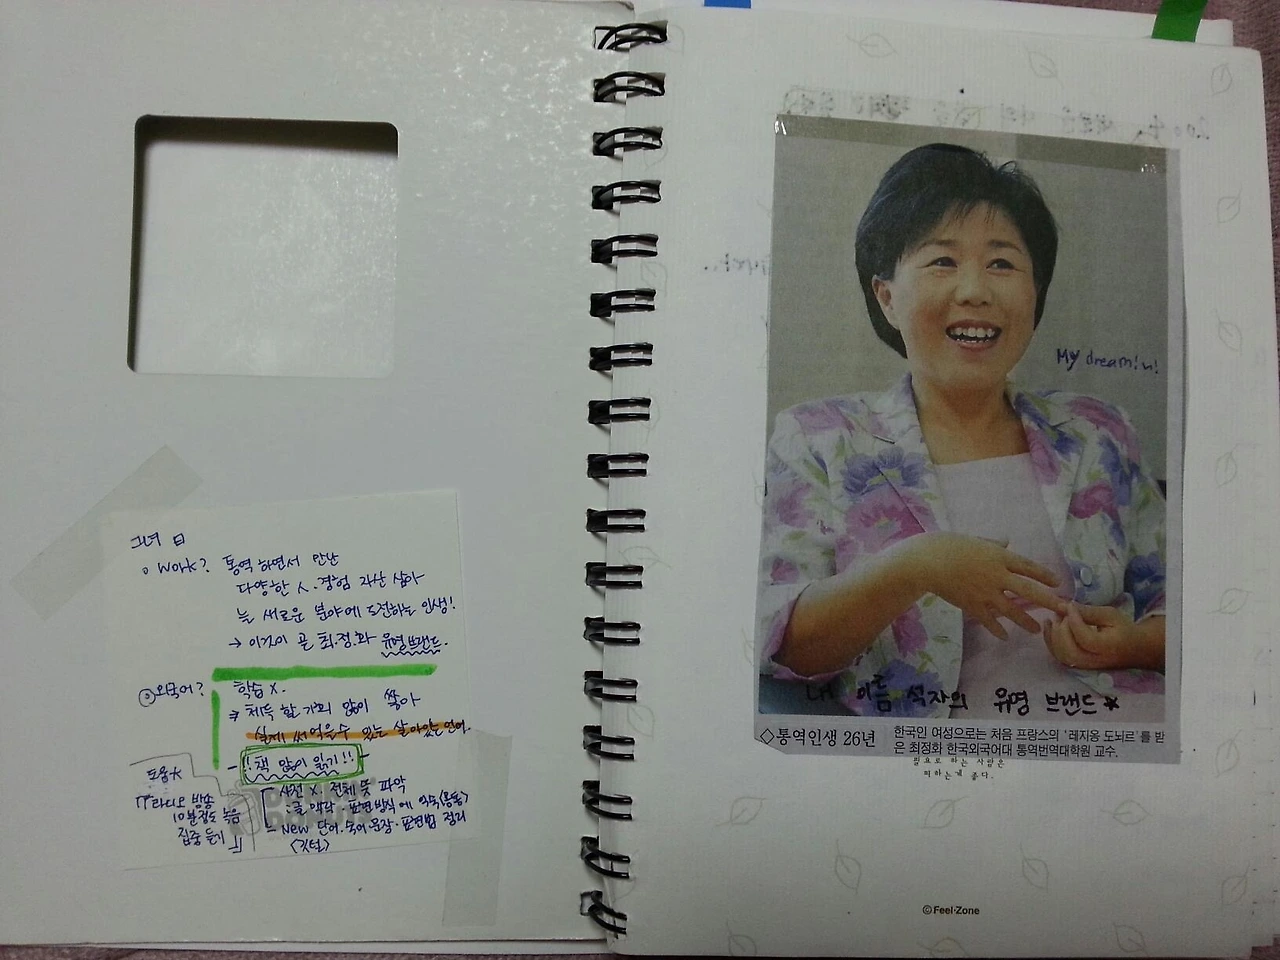 그녀 曰
o Work? 통역 하면서 만난
다양한 人. 경험 자산 삼아
늘 새로운 분야에 도전하는 인생!
→ 이것이 곧 최.정.화 유명브랜드.
외국어? 학습 X.
체득 할 기회 많이 쌓아
실제 써먹을 수 있는 살아있는 언어.
!책 많이 읽기!!
사전 X. 전체 뜻 파악
글 맥락. 표현방식에 익숙
- New 단어.숙어.문장.표현법 정리
도움
『라디오 방송
10분정도 녹음
집중 듣기』
My dream!!
내 이름 석자의 유명 브랜드★
◇통역인생 26년
한국인 여성으로는 처음 프랑스의 '레지옹 도뇌르'를 받
은 최정화 한국외국어대 통역번역대학원 교수.
필요로 하는 사람은
피하는게 좋다.
©Feel·Zone